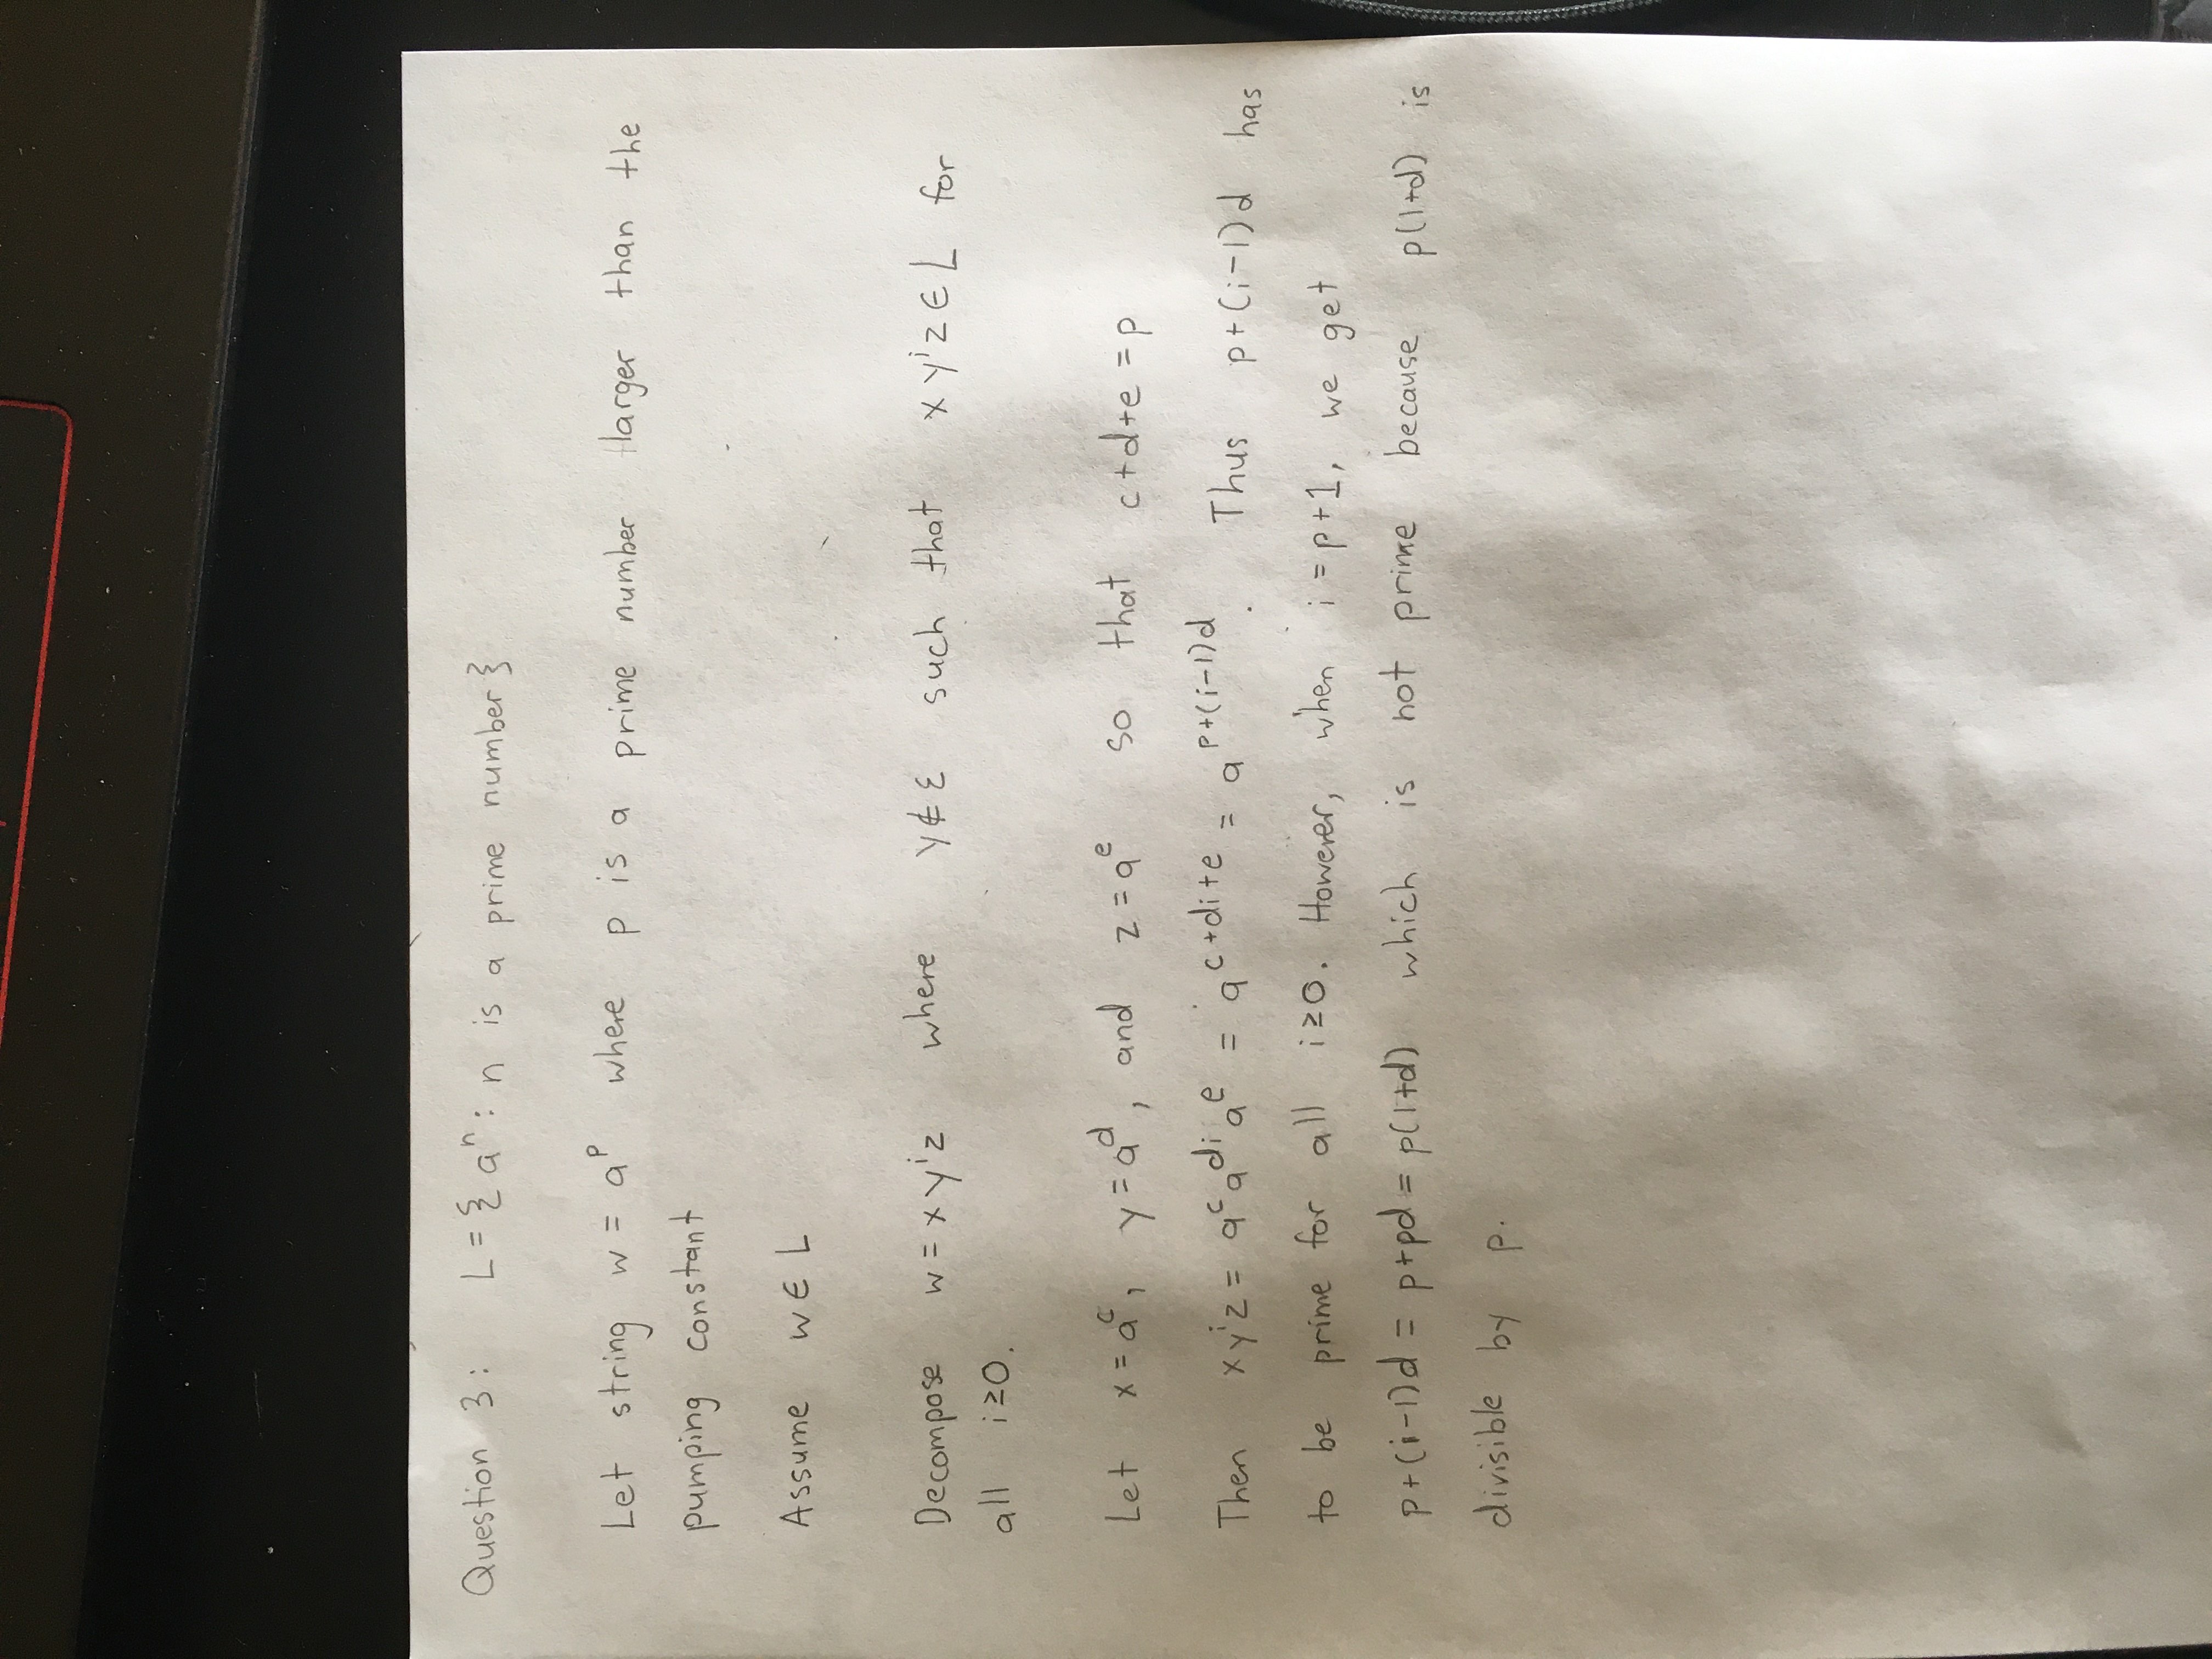 Question 3: L = { aⁿ : n is a prime number }
Let string w = aᵖ where p is a prime number larger than the
pumping constant
Assume w ∈ L
Decompose w = x yⁱ z where y ∉ ε such that x yⁱ z ∈ L for
all i ≥ 0.
Let x = aᶜ, y = aᵈ, and z = aᵉ so that c + d + e = p
Then x yⁱ z = aᶜ aᵈⁱ aᵉ = aᶜ⁺ᵈⁱ⁺ᵉ = aᵖ⁺⁽ⁱ⁻¹⁾ᵈ. Thus p + (i-1)d has
to be prime for all i ≥ 0. However, when i = p + 1, we get
p + (i-1)d = p + pd = p(1+d) which is not prime because p(1+d) is
divisible by p.